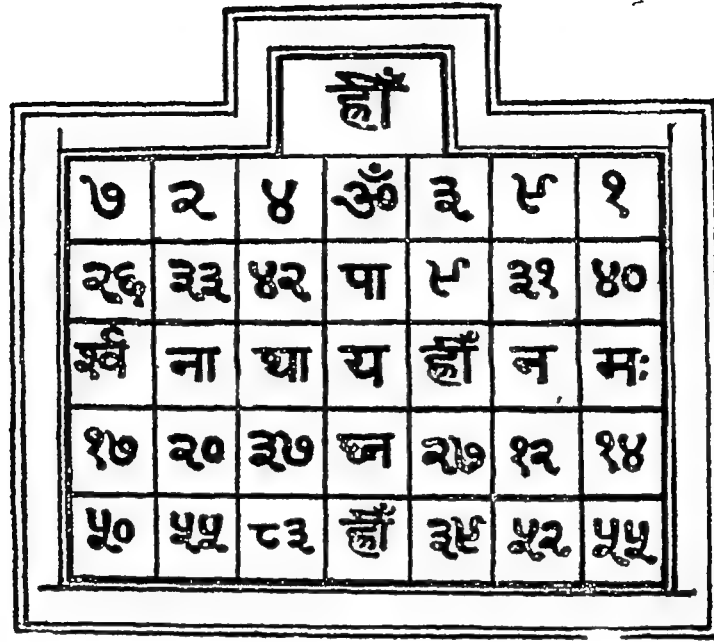 ह्रीं
७ २ ४ ॐ ३ ९ १
२६ ३३ ४२ पा ९ ३१ ४०
र्श्व ना था य ह्रीं न मः
१७ २० ३७ घ्न २७ १२ १४
५० ५५ ८३ ह्रीं ३९ ५२ ५५